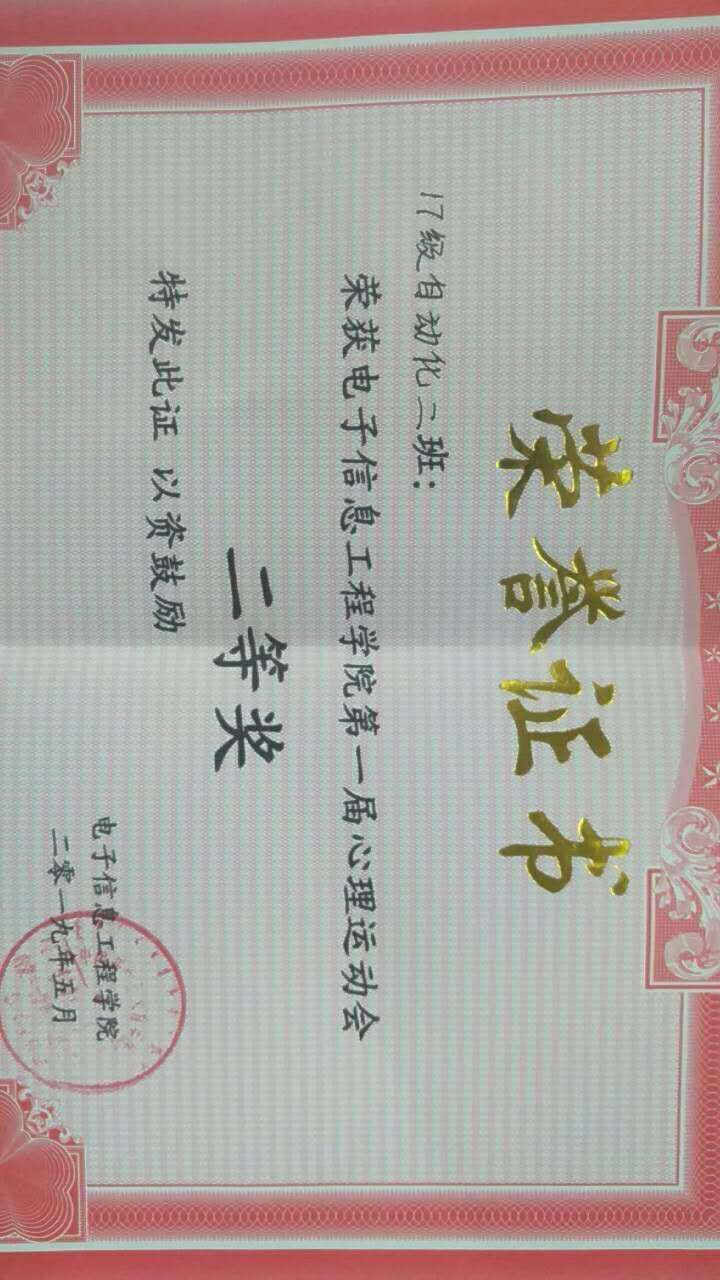 荣誉证书
17级自动化二班：
荣获电子信息工程学院第一届心理运动会
二等奖
特发此证 以资鼓励
电子信息工程学院
二零一九年五月